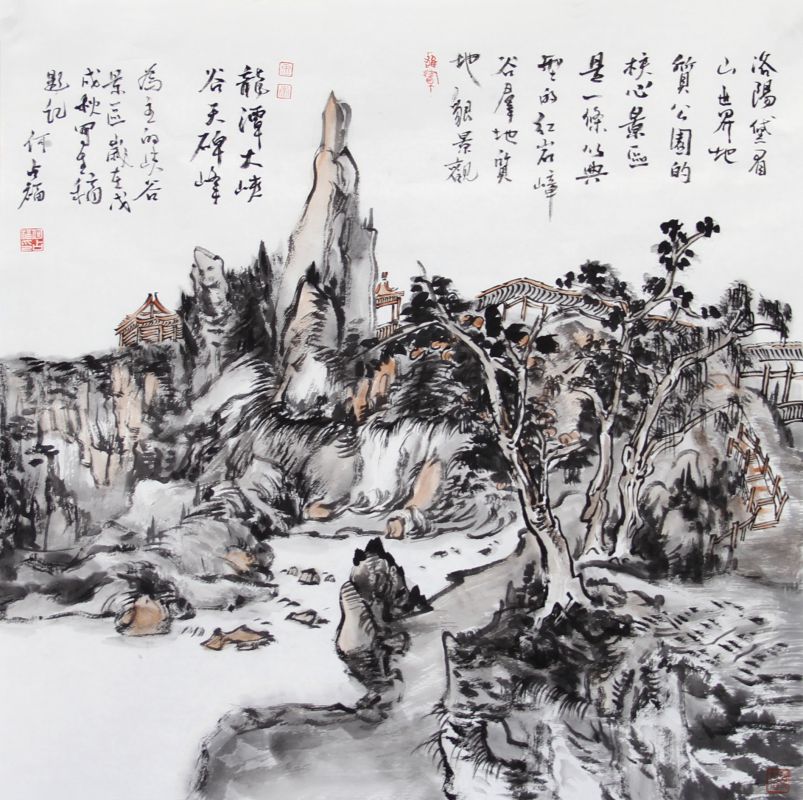 洛陽黛眉
山世界地
質公園的
核心景區
是一條以典
型的紅岩嶂
谷羣地質
地貌景觀
龍潭大峽
谷天碑峰
為主的峽谷
景區歲在戊
戌秋寫生稿
題記 何占福